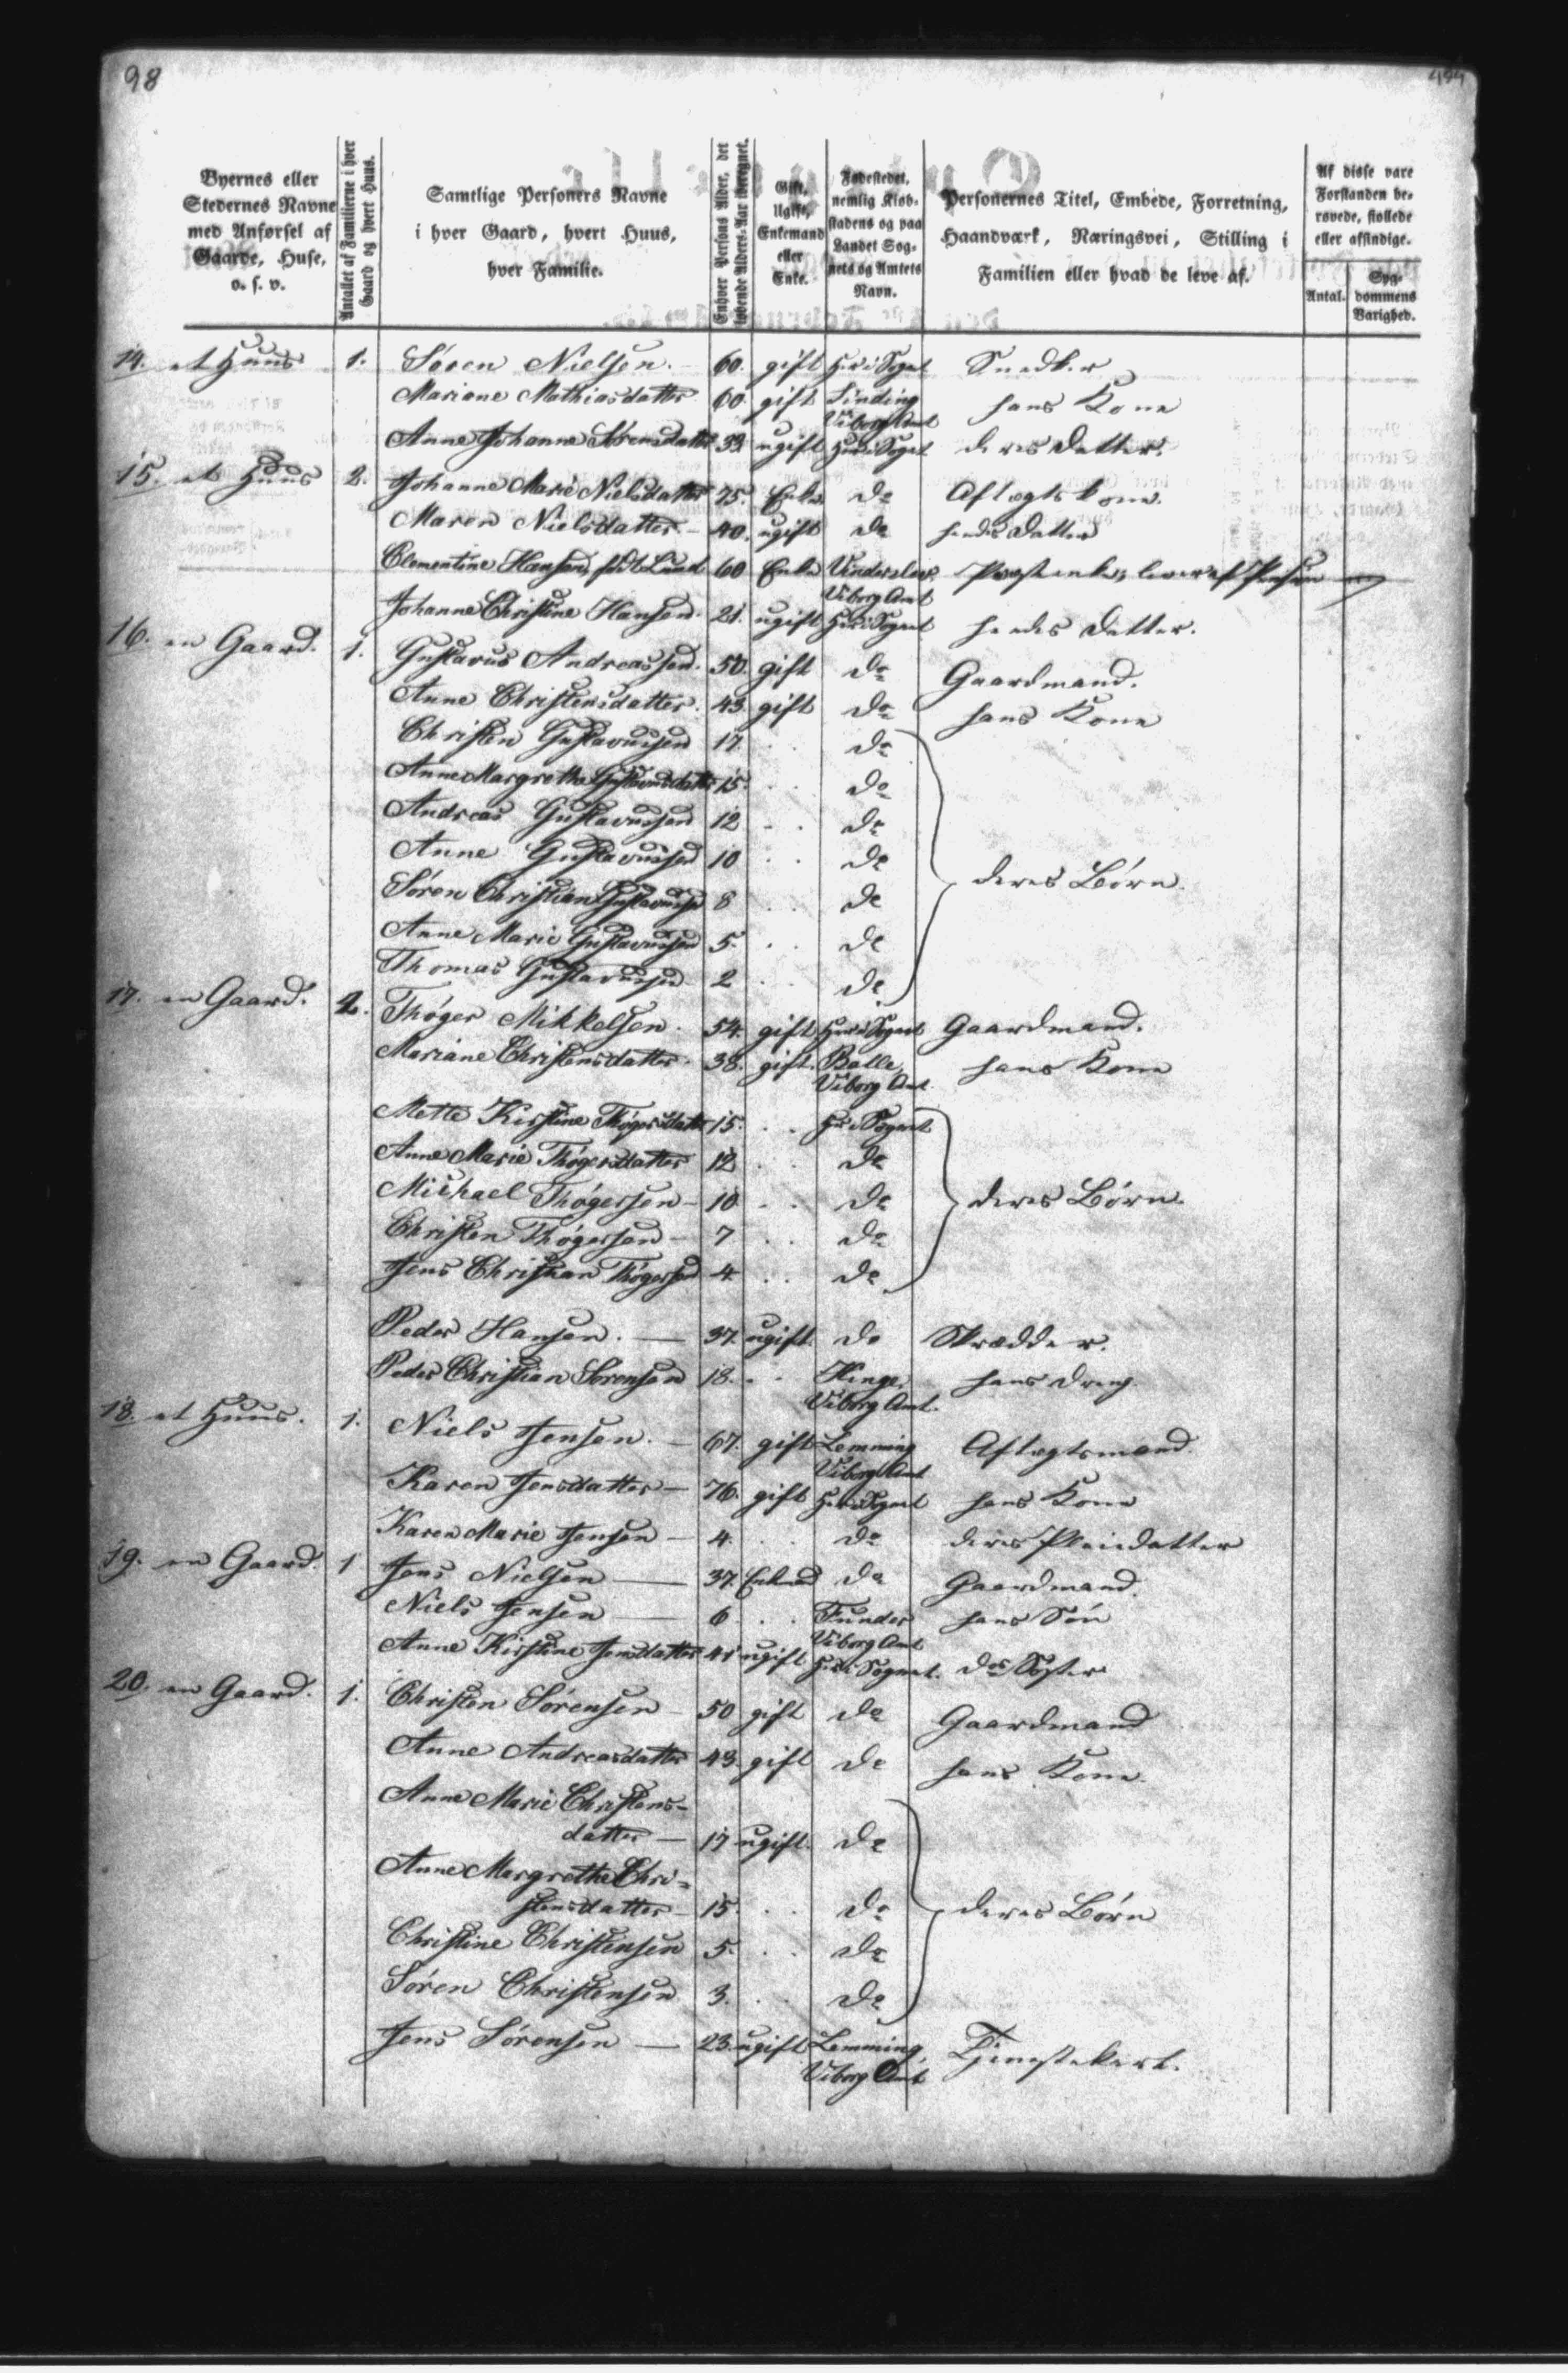 98
Byernes eller Stedernes Navne med Anførsel af Gaarde, Huse, o. s. v.
Antallet af Familierne i hver Gaard og hvert Huus.
Samtlige Personers Navne i hver Gaard, hvert Huus, hver Familie.
Enhver Persons Alder, det løbende Alders-Aar iberegnet.
Gift, Ugift, Enkemand eller Enke.
Fødestedet, nemlig Kiøbstadens og paa Landet Sognets og Amtets Navn.
Personernes Titel, Embede, Forretning, Haandværk, Næringsvei, Stilling i Familien eller hvad de leve af.
Af disse vare Forstanden berøvede, stollede eller afsindige.
Antal.
Sygdommens Varighed.
14. et Huus 1. Søren Nielsen. 60. gift Her i Sognet Snedker
Mariane Mathiasdatter 60. gift Sinding Viborg Amt hans Kone
Anne Johanne Sørensdatter 32 ugift Her i Sognet deres Datter.
15. et Huus 2. Johanne Marie Nielsdatter 75. Enke do Aftægtskone.
Maren Nielsdatter. 40. ugift do hendes Datter
Clementine Hansen, født Lund 60 Enke Vinderslev, Viborg Amt Præsteenke, lever af Pension
Johanne Christine Hansen. 21. ugift Her i Sognet hendes Datter.
16. en Gaard. 1. Gustavus Andreassen. 50. gift do Gaardmand.
Anne Christensdatter. 43. gift do hans Kone
Christen Gustavussen 17 . . do
Anne Margrethe Gustavusdatter 15. . . do
Andreas Gustavussen 12 . . do
Anne Gustavussen 10 . . do deres Børn.
Søren Christian Gustavussen 8 . . do
Anne Marie Gustavussen 5. . . do
Thomas Gustavussen 2 . . do
17. en Gaard. 2. Thøger Mikkelsen. 54. gift Her i Sognet Gaardmand.
Mariane Christensdatter. 38. gift. Balle, Viborg Amt. hans Kone
Mette Kirstine Thøgersdatter 15. . . Her i Sognet
Anne Marie Thøgersdatter 12 . . do
Michael Thøgersen 10 . . do deres Børn.
Christen Thøgersen 7 . . do
Jens Christian Thøgersen 4 . . do
Peder Hansen. 37. ugift. do Skrædder.
Peder Christian Sørensen 18. . . Hinge, Viborg Amt. hans Dreng.
18. et Huus. 1. Niels Jensen. 67. gift Lemming Viborg Amt Aftægtsmand.
Karen Jensdatter 76. gift Her i Sognet hans Kone
Karen Marie Jensen 4. . . do deres Pleiedatter
19. en Gaard. 1 Jens Nielsen 37. Enkmd do Gaardmand.
Niels Jensen 6 . . Funder Viborg Amt hans Søn
Anne Kirstine Jensdatter 41 ugift Her i Sognet. do Søster
20. en Gaard. 1. Christen Sørensen 50 gift do Gaardmand
Anne Andreasdatter 43. gift do hans Kone.
Anne Marie Christens-
datter 17 ugift. do
Anne Margrethe Chri-
stensdatter 15. . . do deres Børn
Christine Christensen 5. . . do
Søren Christensen 3. . . do
Jens Sørensen 23. ugift Lemming, Viborg Amt Tjenestekarl.